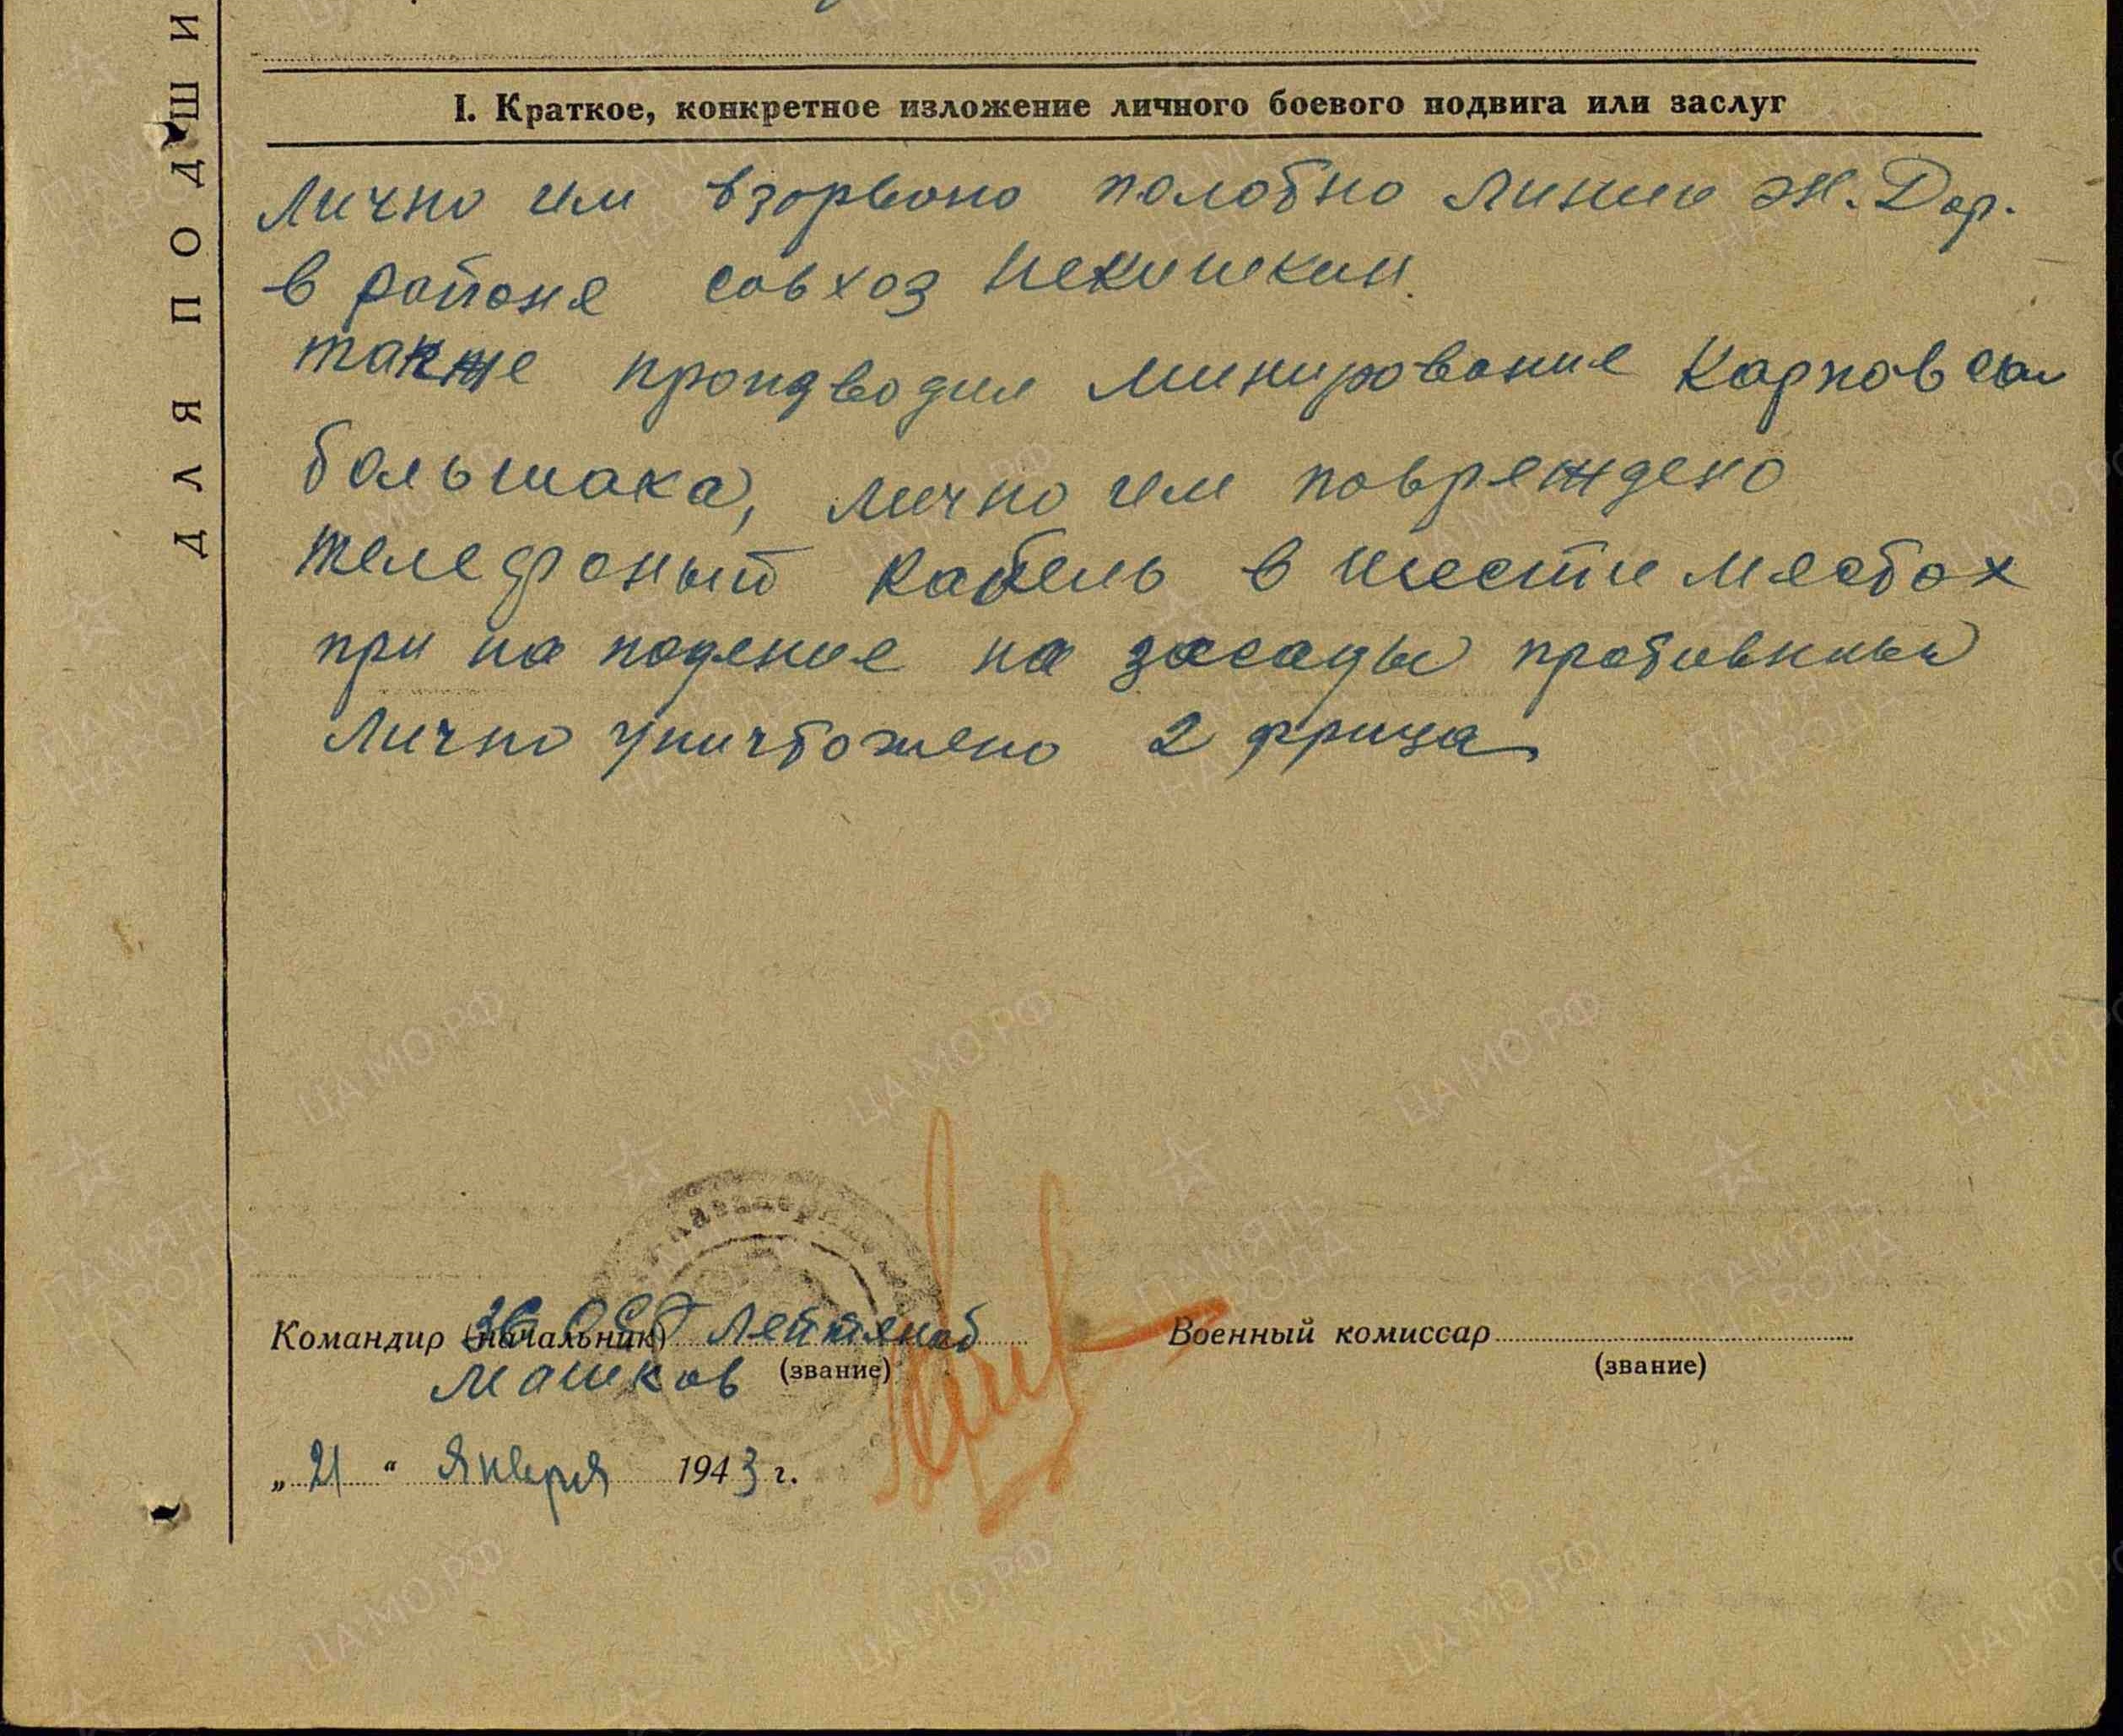 ДЛЯ ПОДШИ
I. Краткое, конкретное изложение личного боевого подвига или заслуг
Лично им взорвоно полотно линии Ж.Дор.
в районе совхоз
также производил минирование Карповсл
большака, лично им повреждено
телефоный кабель в шести местах
при на подение на засады противника
лично уничтожено 2 фрица
Командир (начальник) ОСБ Лейтенат Военный комиссар
Машков (звание) (звание)
„21“ Января 1943 г.
ЦАМО.РФ
ПАМЯТЬ НАРОДА